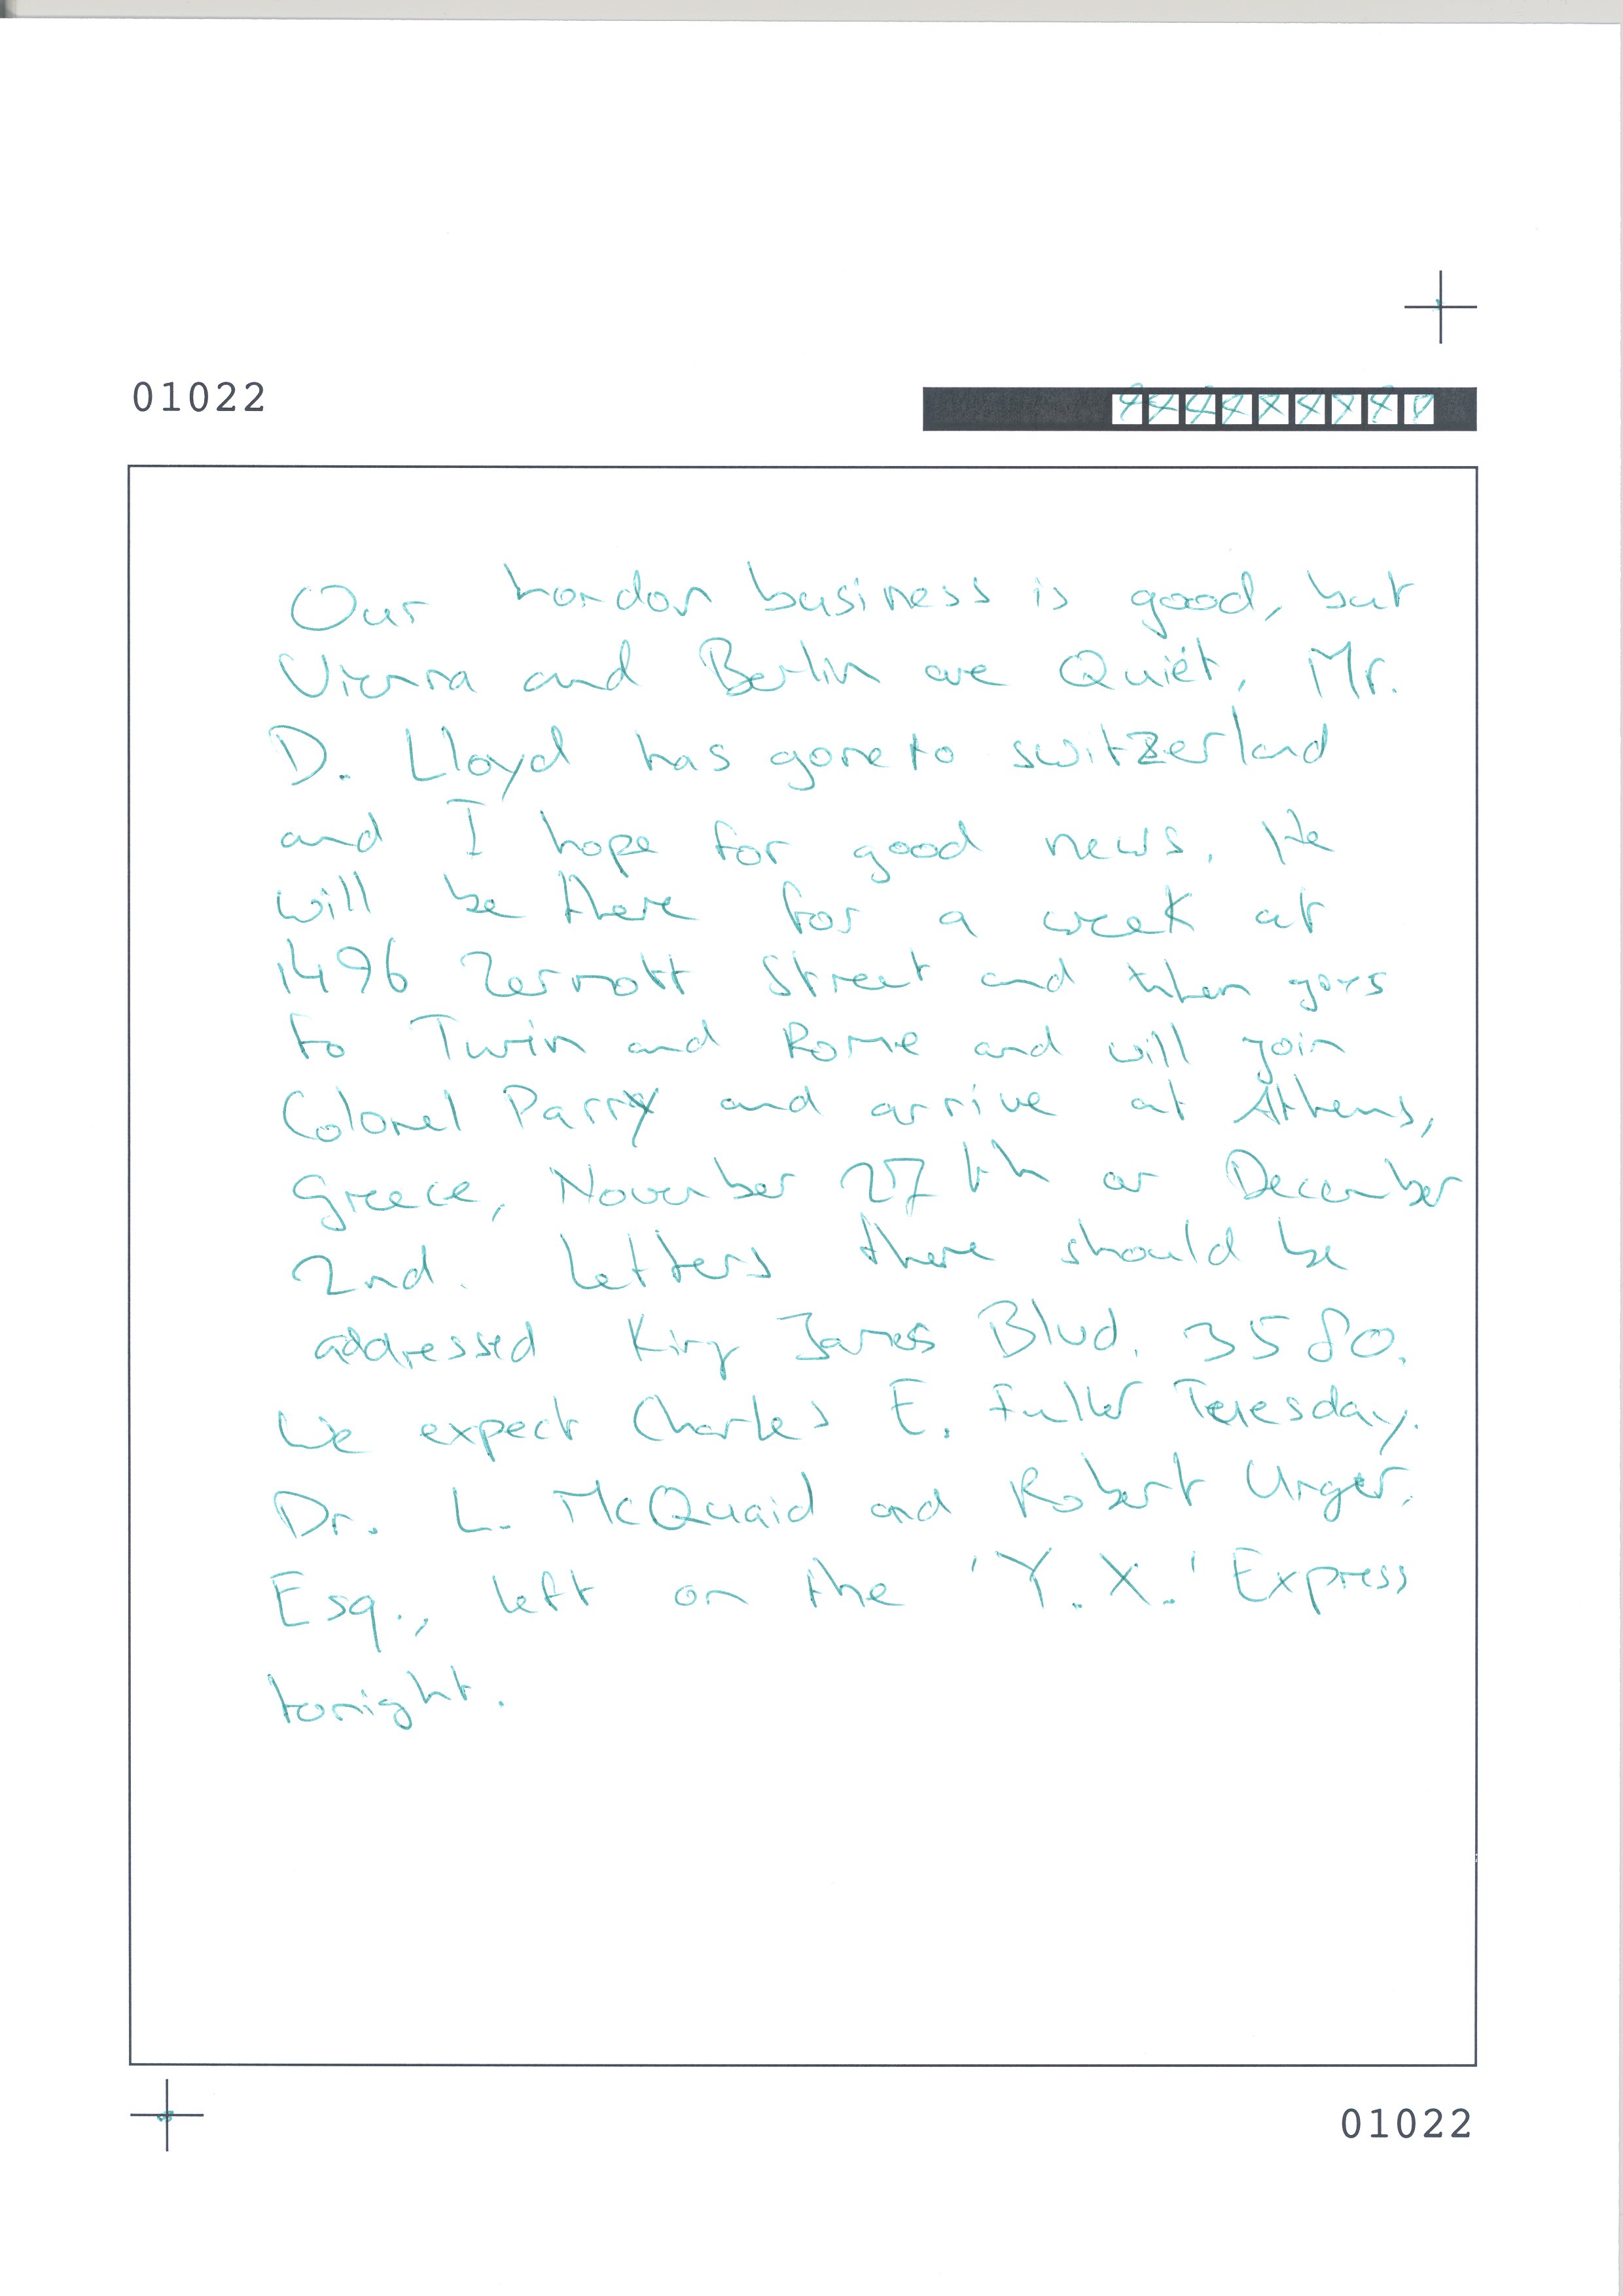 01022
Our London business is good, but
Vienna and Berlin are Quiet, Mr.
D. Lloyd has gone to switzerland
and I hope for good news. He
will be there for a week at
1496 Zermott Street and then goes
to Turin and Rome and will join
Colonel Parry and arrive at Athens,
Greece, November 27th or December
2nd. Letters there should be
addressed King James Blvd. 3580.
We expect Charles E. Fuller Tuesday.
Dr. L. McQuaid and Robert Unger,
Esq., left on the 'Y. X.' Express
tonight.
01022